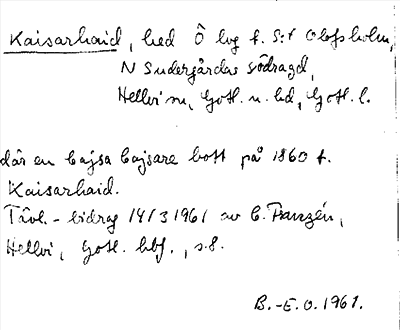 Kaisarhaid, hed Ö hg f. S:t Olofsholm,
N Sudergårdas södragd,
Hellvi sn, Gotl. n. hd, Gotl. l.
där en Cajsa Cajsare bott på 1860 t.
Kaisarhaid.
Tävl.-bidrag 14/3 1961 av C. Franzén,
Hellvi, Gotl. hbf., s. 8.
B.-E. O. 1961.